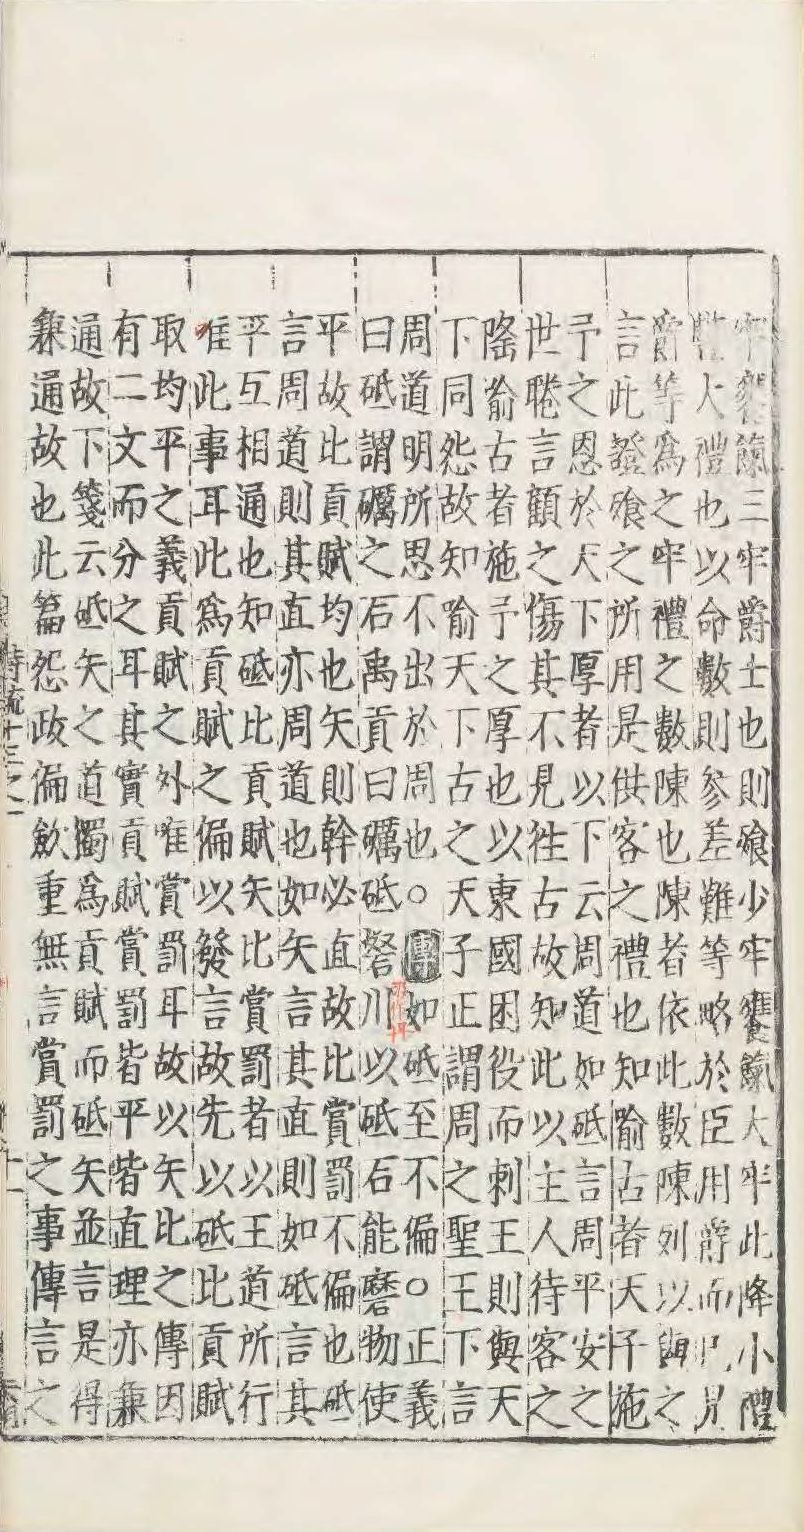 牢饔餼三牢爵士也則飧少牢饔餼大牢此降小禮
豐大禮也以命數則參差難等略於臣用爵而已是
爵等爲之牢禮之數陳也陳者依此數陳列以與之
言此證飧之所用是供客之禮也知喻古者天子施
予之恩於天下厚者以下云周道如砥言周平安之
世睠言顧之傷其不見徃古故知此以主人待客之
隆喻古者施予之厚也以東國困役而刺王則與天
下同怨故知喻天下古之天子正謂周之聖王下言
周道明所思不出於周也○傳如砥至不偏○正義
曰砥謂礪之石禹貢曰礪砥砮川以砥石能磨物使
平故比貢賦均也矢則幹必直故比賞罰不偏也砥
言周道則其直亦周道也如矢言其直則如砥言其
平互相通也知砥比貢賦矢比賞罰者以王道所行
唯此事耳此爲貢賦之偏以發言故先以砥比貢賦
取均平之義貢賦之外唯賞罰耳故以矢比之傳因
有二文而分之耳其實貢賦賞罰皆平皆直理亦兼
通故下箋云砥矢之道獨爲貢賦而砥矢並言是得
兼通故也此篇怨政偏斂重無言賞罰之事傳言之
詩疏十三之一
十一